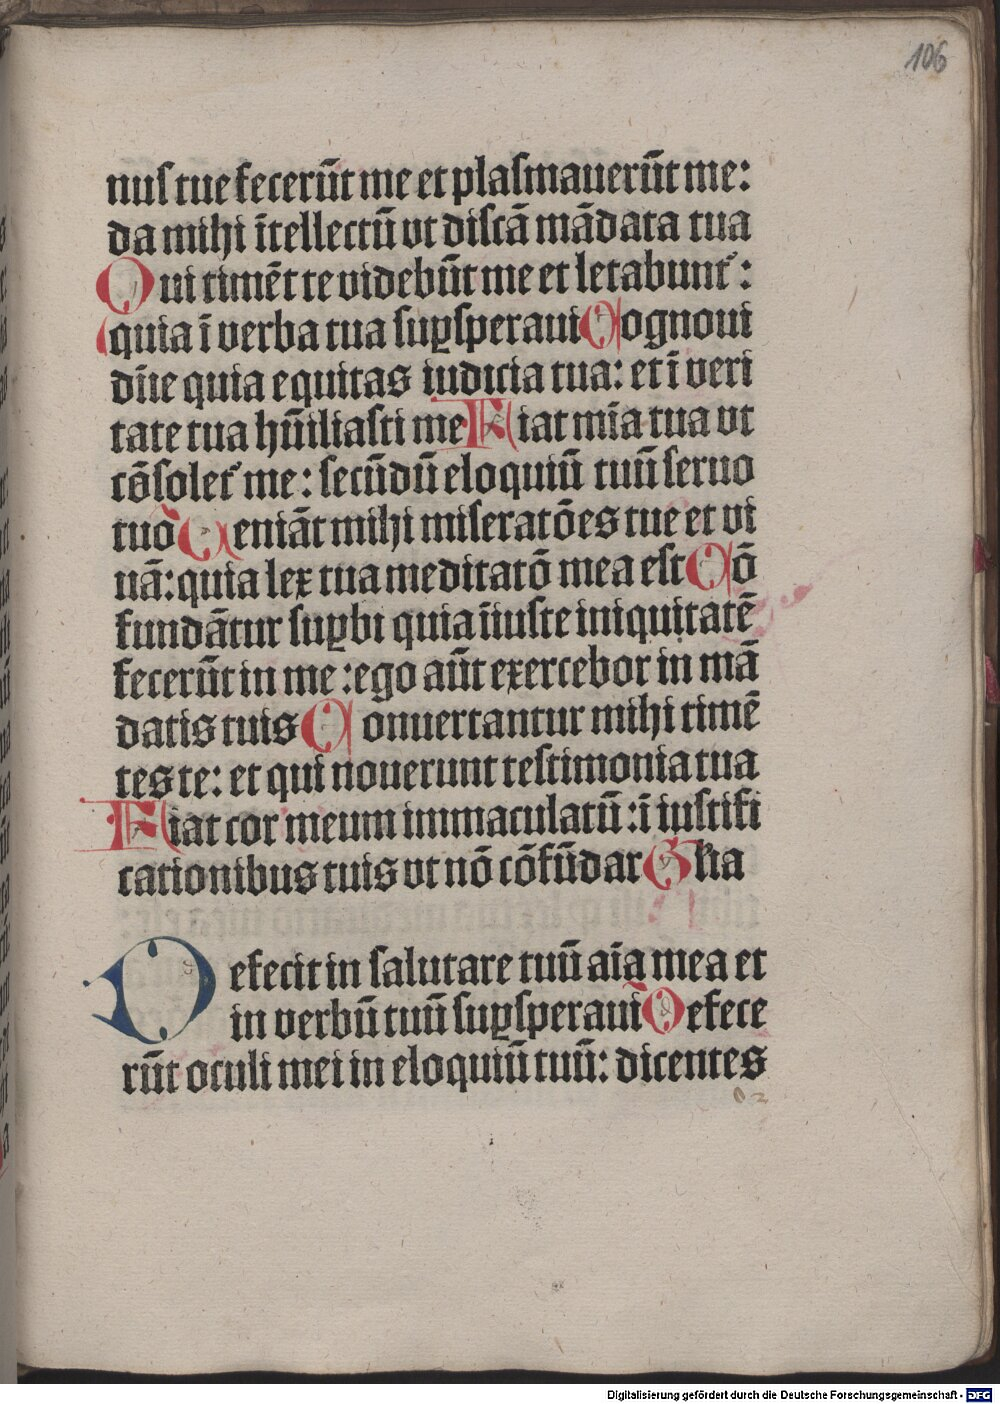 106
nus tue fecerūt me et plasmauerūt me:
da mihi ītellectū vt discā mādata tua
Qui timēt te videbūt me et letabunt᷑:
quia ī verba tua suꝑsperaui Cognoui
dn̄e quia equitas iudicia tua: et ī veri
tate tua hūiliasti me Fiat mīa tua vt
cōsolet᷑ me: secūdū eloquiū tuū seruo
tuo Ueniāt mihi miseratōes tue et vi
uā: quia lex tua meditatō mea est Cō
fundātur suꝑbi quia iīuste iniquitatē
fecerūt in me: ego aūt exercebor in mā
datis tuis Conuertantur mihi timē
tes te: et qui nouerunt testimonia tua
Fiat cor meum immaculatū: ī iustifi
cationibus tuis vt nō cōfūdar Gl̄ia
Defecit in salutare tuū aīa mea et
in verbū tuū suꝑsperaui Defece
rūt oculi mei in eloquiū tuū: dicentes
o 2
Digitalisierung gefördert durch die Deutsche Forschungsgemeinschaft - DFG